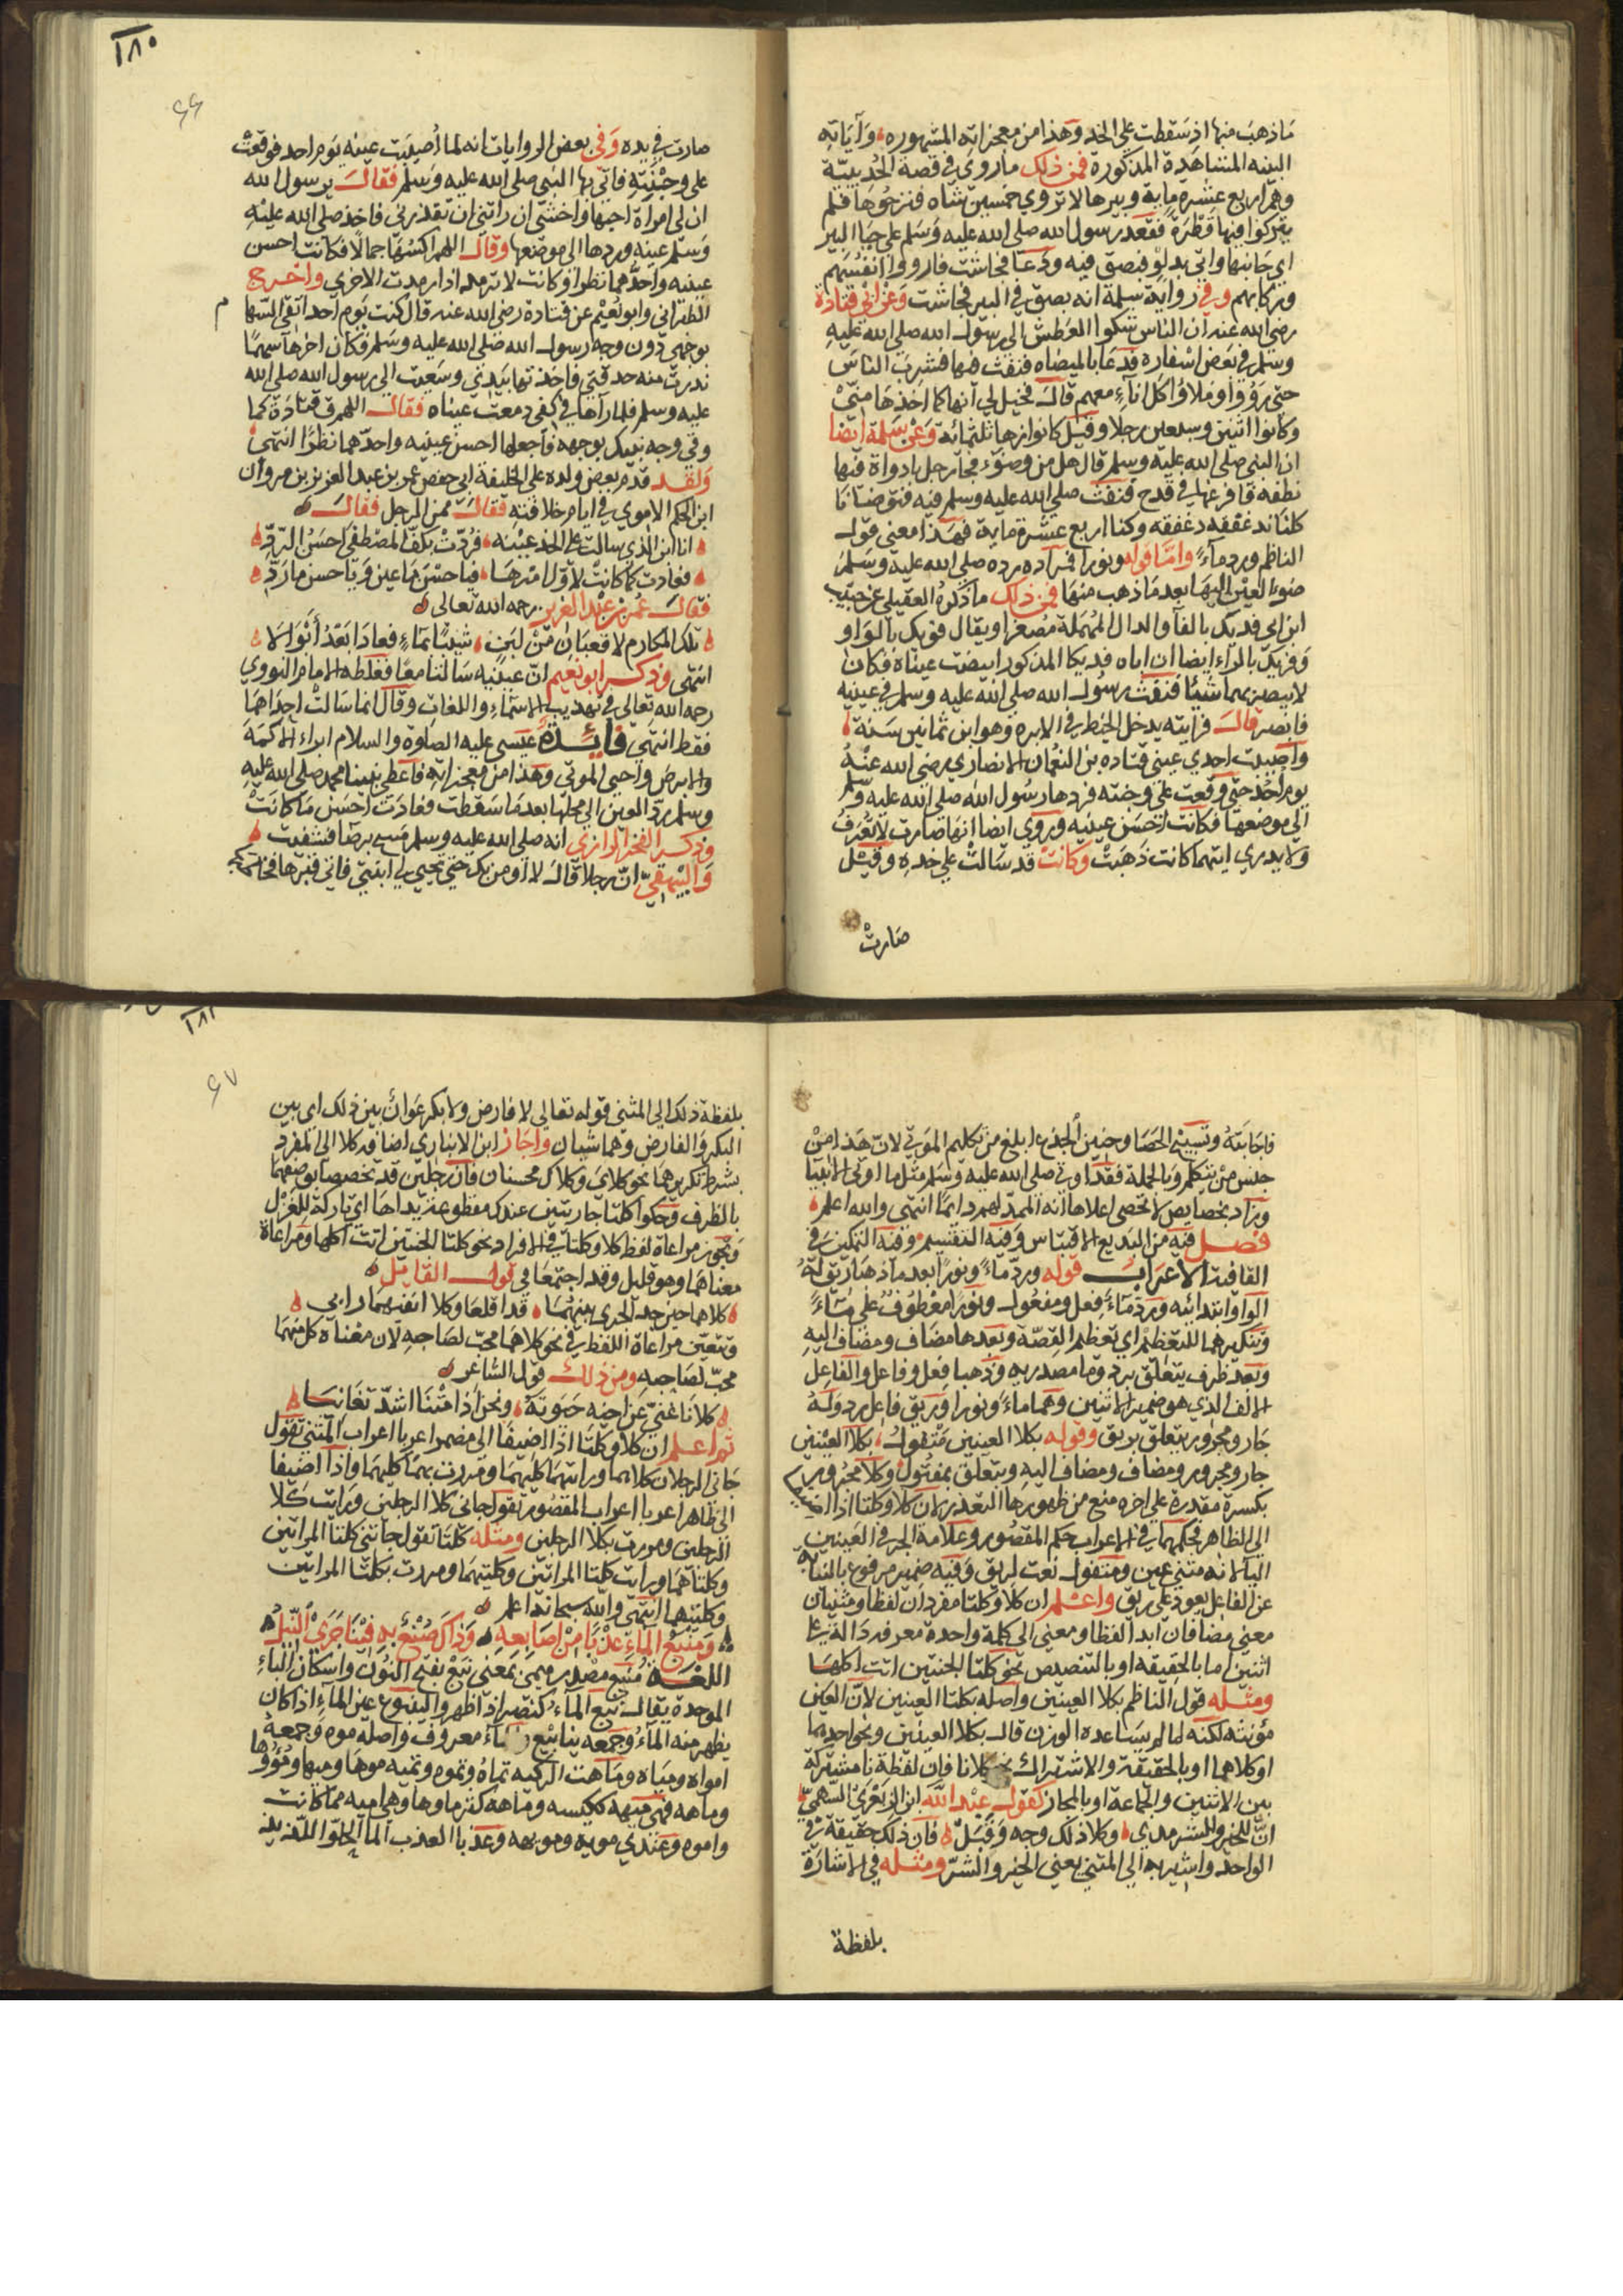 ما ذهب منها اذ سقطت علي الخد وهذا من معجزاته المشهوره وآياته
البينه المشاهدة المذكورة فمن ذلك ماروي في قصة الحُديبيّة
وهم اربع عشره ماية وبيرها لا تروي خمسين شاه فنزحوها فلم
يتركوا فيها قطرةً فقعد رسول الله صلى الله عليه وسلم علي جبا البير
اي جانبها واتي بدلو فبصق فيه ودعا فجاشت فارووا انفسهم
وركابهم وفي رواية سلمة انه بصق في البير فجاشت وعن ابي قتادة
رضي الله عنه ان الناس شكوا العطش الي رسول الله صلى الله عليه
وسلم في بعض اسفاره فدعا بالميضاه فنفث فيها فشرب الناس
حتي رَوُوا وملاوا كل انآءٍ معهم قال فخيل لي انها كما اخذها منّي
وكانوا اثنين وسبعين رجلا وقيل كانوا زها ثلثمائه وعن سلمة ايضا
ان النبي صلى الله عليه وسلم قال هل من وضوء فجا رجل باداوة فيها
نطفه فافرغها في قدح فنفث صلى الله عليه وسلم فيه فتوضانا
كلنا ندغفقه دغفقه وكنا اربع عشرة ماية فهذا معني قول
الناظم ورد مآءً واما قوله ونورا فمراده رده صلى الله عليه وسلم
ضوء العين اليها بعد ما ذهب منها فمن ذلك ما ذكره العقيلي عن حبيب
ابن ابي فديك بالفآ والدال المهملة مصغرا ويقال فويك بالواو
وفريك بالرآء ايضا ان اباه فديكا المذكور ابيضت عيناه فكان
لا يبصر بهما شيئا فنفث رسول الله صلى الله عليه وسلم في عينيه
فابصر قال فرايته يدخل الخيط في الابره وهو ابن ثمانين سنة
واصيبت احدي عيني قتاده بن النعمان الانصاري رضي الله عنهُ
يوم اُحُد حتي وقعت علي وجنته فردها رسول الله صلى الله عليه وسلم
الي موضعها فكانت احسن عينيه وروي ايضا انها صارت لا تُعرف
ولا يدري ايتهما كانت ذهبَتْ وكانت قد سالتْ علي خدِه وقيل
صارتْ
١٨٠
٦٦
صارت في يده وفي بعض الروايات انه لما اُصيبت عينه يوم احد فوقعت
علي وجنتِهِ فاتي بها النبي صلى الله عليه وسلم فقال يرسول الله
ان لي امراة احبها واخشي ان راتني ان تقذرني فاخذ صلى الله عليه
وسلم عينه وردها الي موضعها وقال اللهم اكسُهَا جمالًا فكانت احسن
عينيه واحدّهما نظرا وكانت لا ترمد اذا رمدت الاخري واخرج
الطبراني وابو نُعيْم عن قتادة رضي الله عنه قال كنت يوم احد اتقي السهام
بوجهي دون وجه رسول الله صلى الله عليه وسلم فكان اخرها سهمًا
ندرت منه حدقتي فاخذتها بيدي وسعيت الي رسول الله صلى الله
عليه وسلم فلما رآها في كفي دمعت عيناه فقال اللهم ق قتادة كما
وقي وجه نبيك بوجهه فاجعلها احسن عينيه واحدّهما نظرًا انتهي
ولقد قدم بعض ولده علي الخليفة ابي حفص عمر بن عبد العزيز بن مروان
ابن الحكم الاموي في ايام خلافتهِ فقال ممن الرجل فقال
انا ابن الذي سالت علي الخد عينه فرُدّتْ بكفّ المصْطفي احسَنَ الردِّ
فعادت كما كانتْ لاوّل امرها فيا حسْنَ ما عين ويا حسن ما ردِّ
فقال عمر بن عبْد العزيز رحمه الله تعالي
تلك المكارم لا قعبَانِ منْ لبَنٍ شيبَا بمآءٍ فعادا بَعْدُ اَبْوَالا
انتهي وذكر ابو نعيم انّ عينيه سالتا معًا فغلطه الامام النووي
رحمه الله تعالي في تهذيب الاسمآءِ واللغات وقال انما سالتْ احداهما
فقط انتهي فايدةً عيسي عليه الصلوة والسلام ابراء الاكمَهَ
والابرصَ واحيي الموتي وهذا من معجزاته فاعطي نبينا محمد صلى الله عليه
وسلم ردّ العين الي محلها بعد ما سقطت فعادت احسن ما كانَتْ
وذكر الفخر الرازي انه صلى الله عليه وسلم مسح برصًا فشفيت
والبيهقيّ انّ رجلا قال لا اومن بك حتي تحيي لي ابنتي فاتي قبرها فخاطبها
فاجابته وتسبيح الحصا وحنين الجذع ابلغ من تكليم الموتي لانّ هذا مِنْ
جنس مَنْ يتكلم وبالجملة فقد اوتي صلى الله عليه وسلم مثل ما اوتي الانبيا
وزاد بخصايص لا تحصي اعلاها انه الممدّ لهم دايمًا انتهي والله اعلم
فصل فيه من البديع الاقتباس وفيه التقسيم وفيه التمكين في
القافية الاعراب قوله وردّ مآءً ونورًا بعد ما ذهبا ريق لهُ
الواو ابتدائيه وردّ مآءً فِعل ومفعول ونورًا معْطوف علي مآءً
وتنكيرهما للتعظيم اي تعظيم القصّة وبعدها مضاف ومضاف اليه
وبعد ظرف يتعلق برد وما مصدريه وذهبا فعل وفاعل والفاعل
الالف الذي هو ضمير الاثنين وهما ماءً ونورا وريق فاعل رد وله
جار ومجرور يتعلق بريق وقوله بكلا العينين متفول بكلا العينين
جار ومجرور ومضاف ومضاف اليه ويتعلق بمفتول وكلا مجرور
بكسرة مقدرة علي اخره منع من ظهورها التعذر لان كلا وكلتا اذا اضيفا
الي الظاهر فحكمهما في الاعراب حكم المقصور وعلامة الجر في العينين
اليا لانه مثني عين ومتفول نعت لريق وفيه ضمير مرفوع بالنيابه
عن الفاعل يعود علي ريق واعلم ان كلا وكلتا مفردان لفظا ومثنيان
معني مضافان ابدا لفظا ومعني الي كلمة واحدة معرفه دالة علي
اثنين اما بالحقيقه او بالتنصيص نحو كلتا الجنتين اتت اكلها
ومثله قول الناظم بكلا العينين واصله بكلتا العينين لانّ العين
مؤنثه لكنه لما لم يساعده الوزن قال بكلا العينين ونحو احدهما
او كلاهما او بالحقيقة والاشتراك نحو كلانا فان لفظة نا مشتركة
بين الاثنين والجماعة او بالمجاز كقول عبد الله ابن الزبعْري السهميّ
انّ للخير وللشر مدي وكلا ذلك وجه وقَبَلْ فان ذلك حقيقة في
الواحد واشير به الي المثني يعني الخير والشرّ ومثله في الاشارة
بلفظة
١٨١
٦٧
بلفظة ذلك الي المثني قوله تعالي لا فارض ولا بكر عوان بين ذلك اي بين
البكر والفارض وهما شيان واجاز ابن الانباري اضافة كلا الي المفرد
بشرط تكريرها نحو كلاي وكلاك محسنان فان رجلين قد تخصصا بوضعهما
بالظرف وحكوا كلتا جاريتين عندك مقطوعة يداها اي تاركة للغزْل
ويجوز مراعاة لفظ كلا وكلتا في الافراد نحو كلتا الجنتين اتت اكلها ومراعاة
معناهما وهو قليل وقد اجتمعا في قول القايل
كلاهما حين جد الجري بينهُمَا قد اقلعا وكلا انفيهما رابي
وتتعين مراعاة اللفظ في نحو كلاهما محبّ لصاحبهِ لان معْناه كل منهما
محبّ لصاحبه ومن ذلك قول الشاعر
كلانا غنيّ عن اخيه حيوتَهُ ونحن اذا متْنَا اشدّ تغانيَا
ثم اعلم ان كلا وكلتا اذا اضيفا الي مضمر اعربا اعراب المثني تقول
جاني الرجلان كلاهما ورايتهما كليهما ومررت بهما كليهما واذا اضيفا
الي ظاهر اعربا اعراب المقصور تقول جاني كلا الرجلين ورايت كلا
الرجلين ومررت بكلا الرجلين ومثله كلتا تقول جاتني كلتا المراتين
وكلتاهما ورايت كلتا المراتين وكلتيهما ومررت بكلتا المراتين
وكلتيهما انتهي والله سبحانه اعلم
ومَنْبَعُ المآءِ عذْبًا مِنْ اصابعِهِ وذاكَ صُنْعٌ بهِ فيْنَا جَرَيْ النِّيلُ
اللغة مصدر ميمي بمعني نبع بفتح النون واسكان البآءِ
الموحدة يقال نبع المآءُ كنصر اذا ظهر والينبوع عين المآءِ اذا كان
يظهر منه المآءُ وجمعه ينابيع والماءُ معروف واصله موه وجمعهُ
امواه ومياه وماهت الركيه تماهُ وتموه وتميه موها وميها ومُؤُوْهًا
وماهه فهي ميهه ككيسه وماهه كثر ماوها وهي اميه مما كانت
واموه وعندي مويه ومويهه وعذبا العذب المآ الحلو اللذيذ